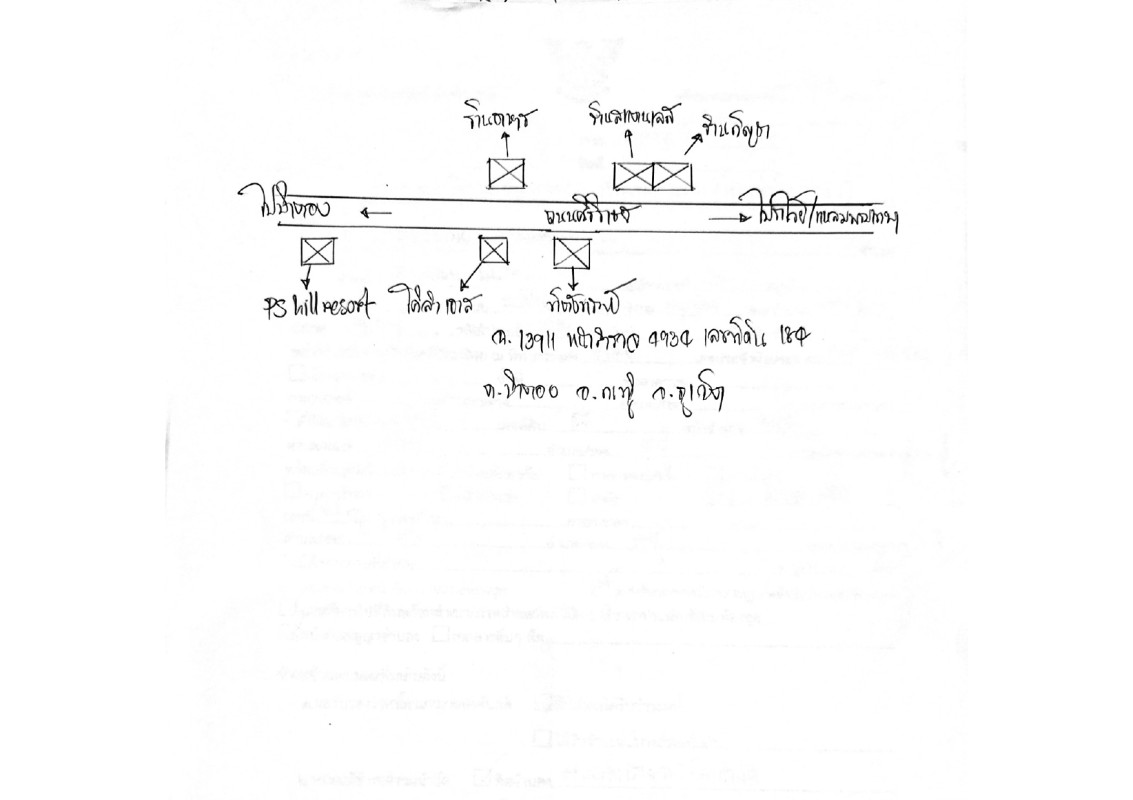 ร้านอาหาร
ร้านสแตนเลส
ร้านกัญชา
ไปป่าตอง
ถนนสิริราชย์
ไปกะหลิม/แหลมพรหมเทพ
PS hill resort
โคสำ เฮาส์
ที่ตั้งทรัพย์
ฉ. 13911 หน้าสำรวจ 4934 เลขที่ดิน 184
ต.ป่าตอง อ.กะทู้ จ.ภูเก็ต